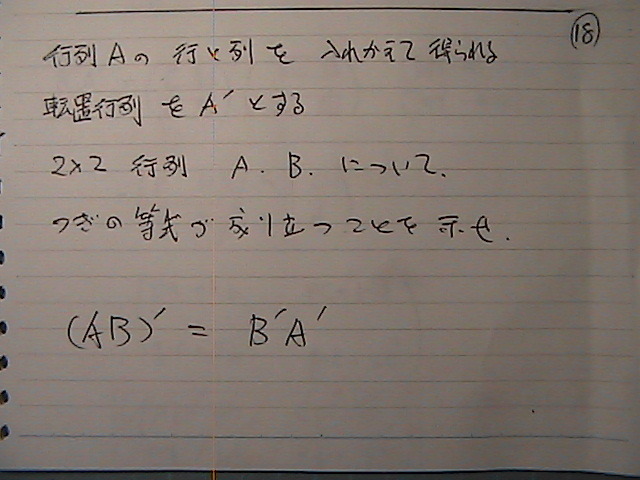 ⑱
行列Aの 行と列を 入れかえて 得られる
転置行列 を A′ とする
2×2 行列 A. B. について.
つぎの 等式が 成り立つことを 示せ.
(AB)′ = B′A′